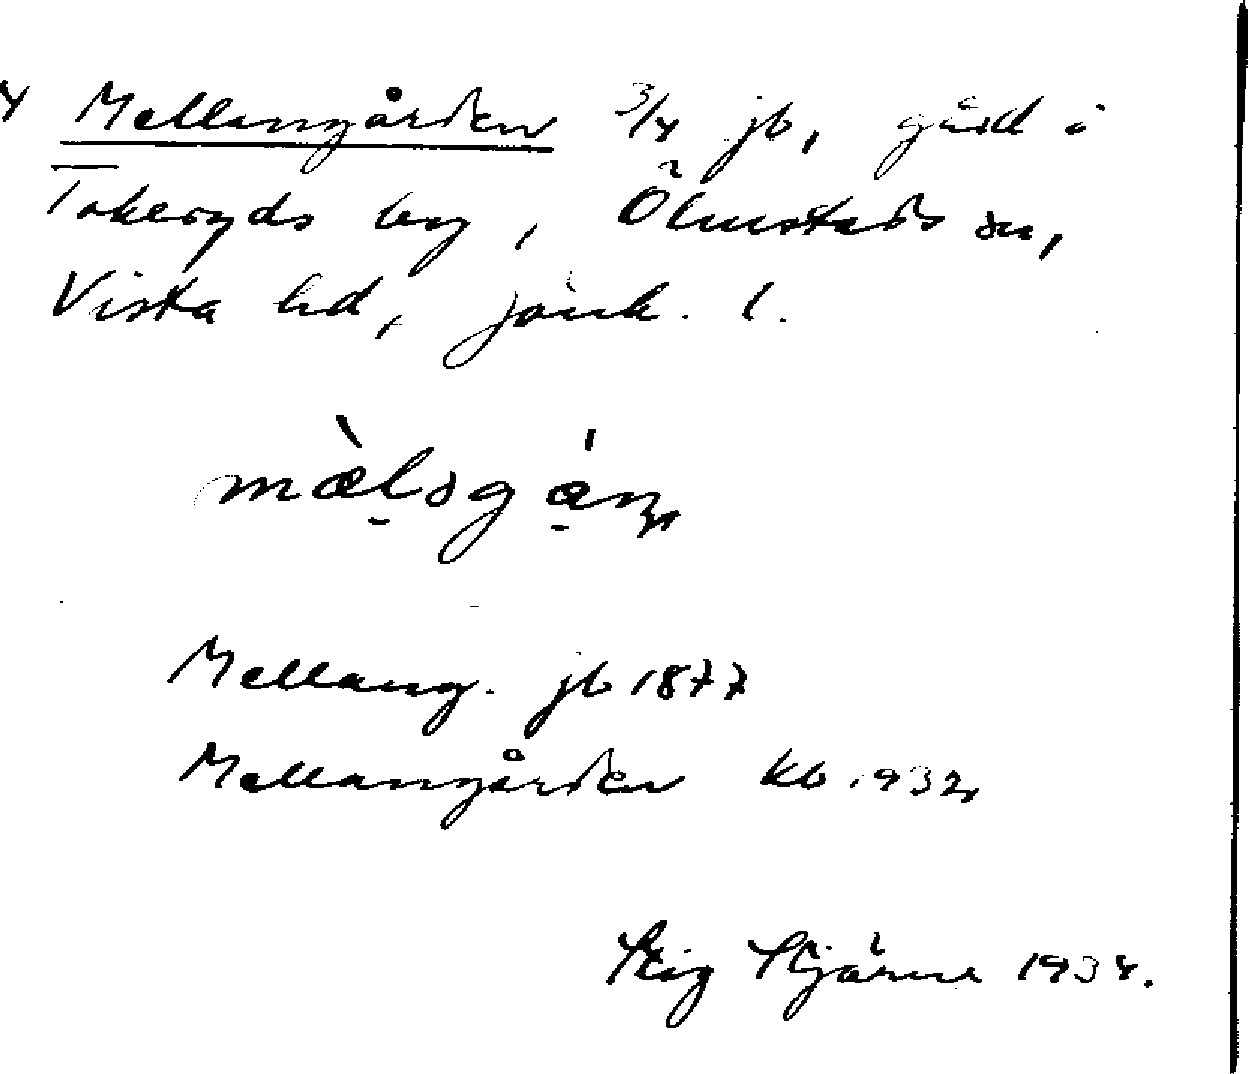 Mellangården 3/4 jb, gård i
Tokeryds by, Ölmstads sn,
Vista hd, Jönk. l.
Mellang. jb 1877
Mellangården kb 1932
Stig Stjärne 1934.